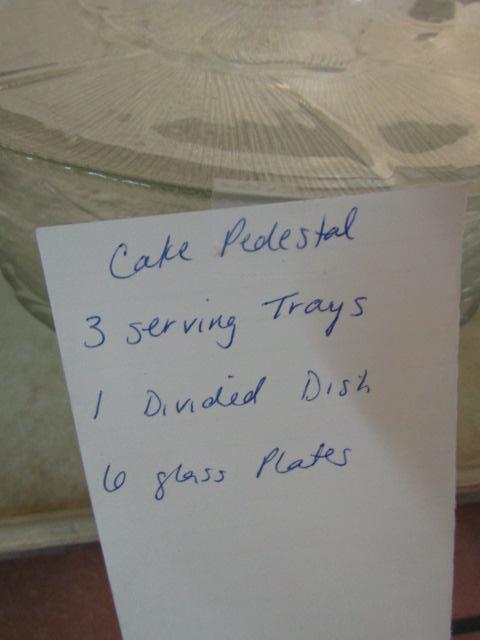 Cake Pedestal
3 serving Trays
1 Divided Dish
6 glass Plates